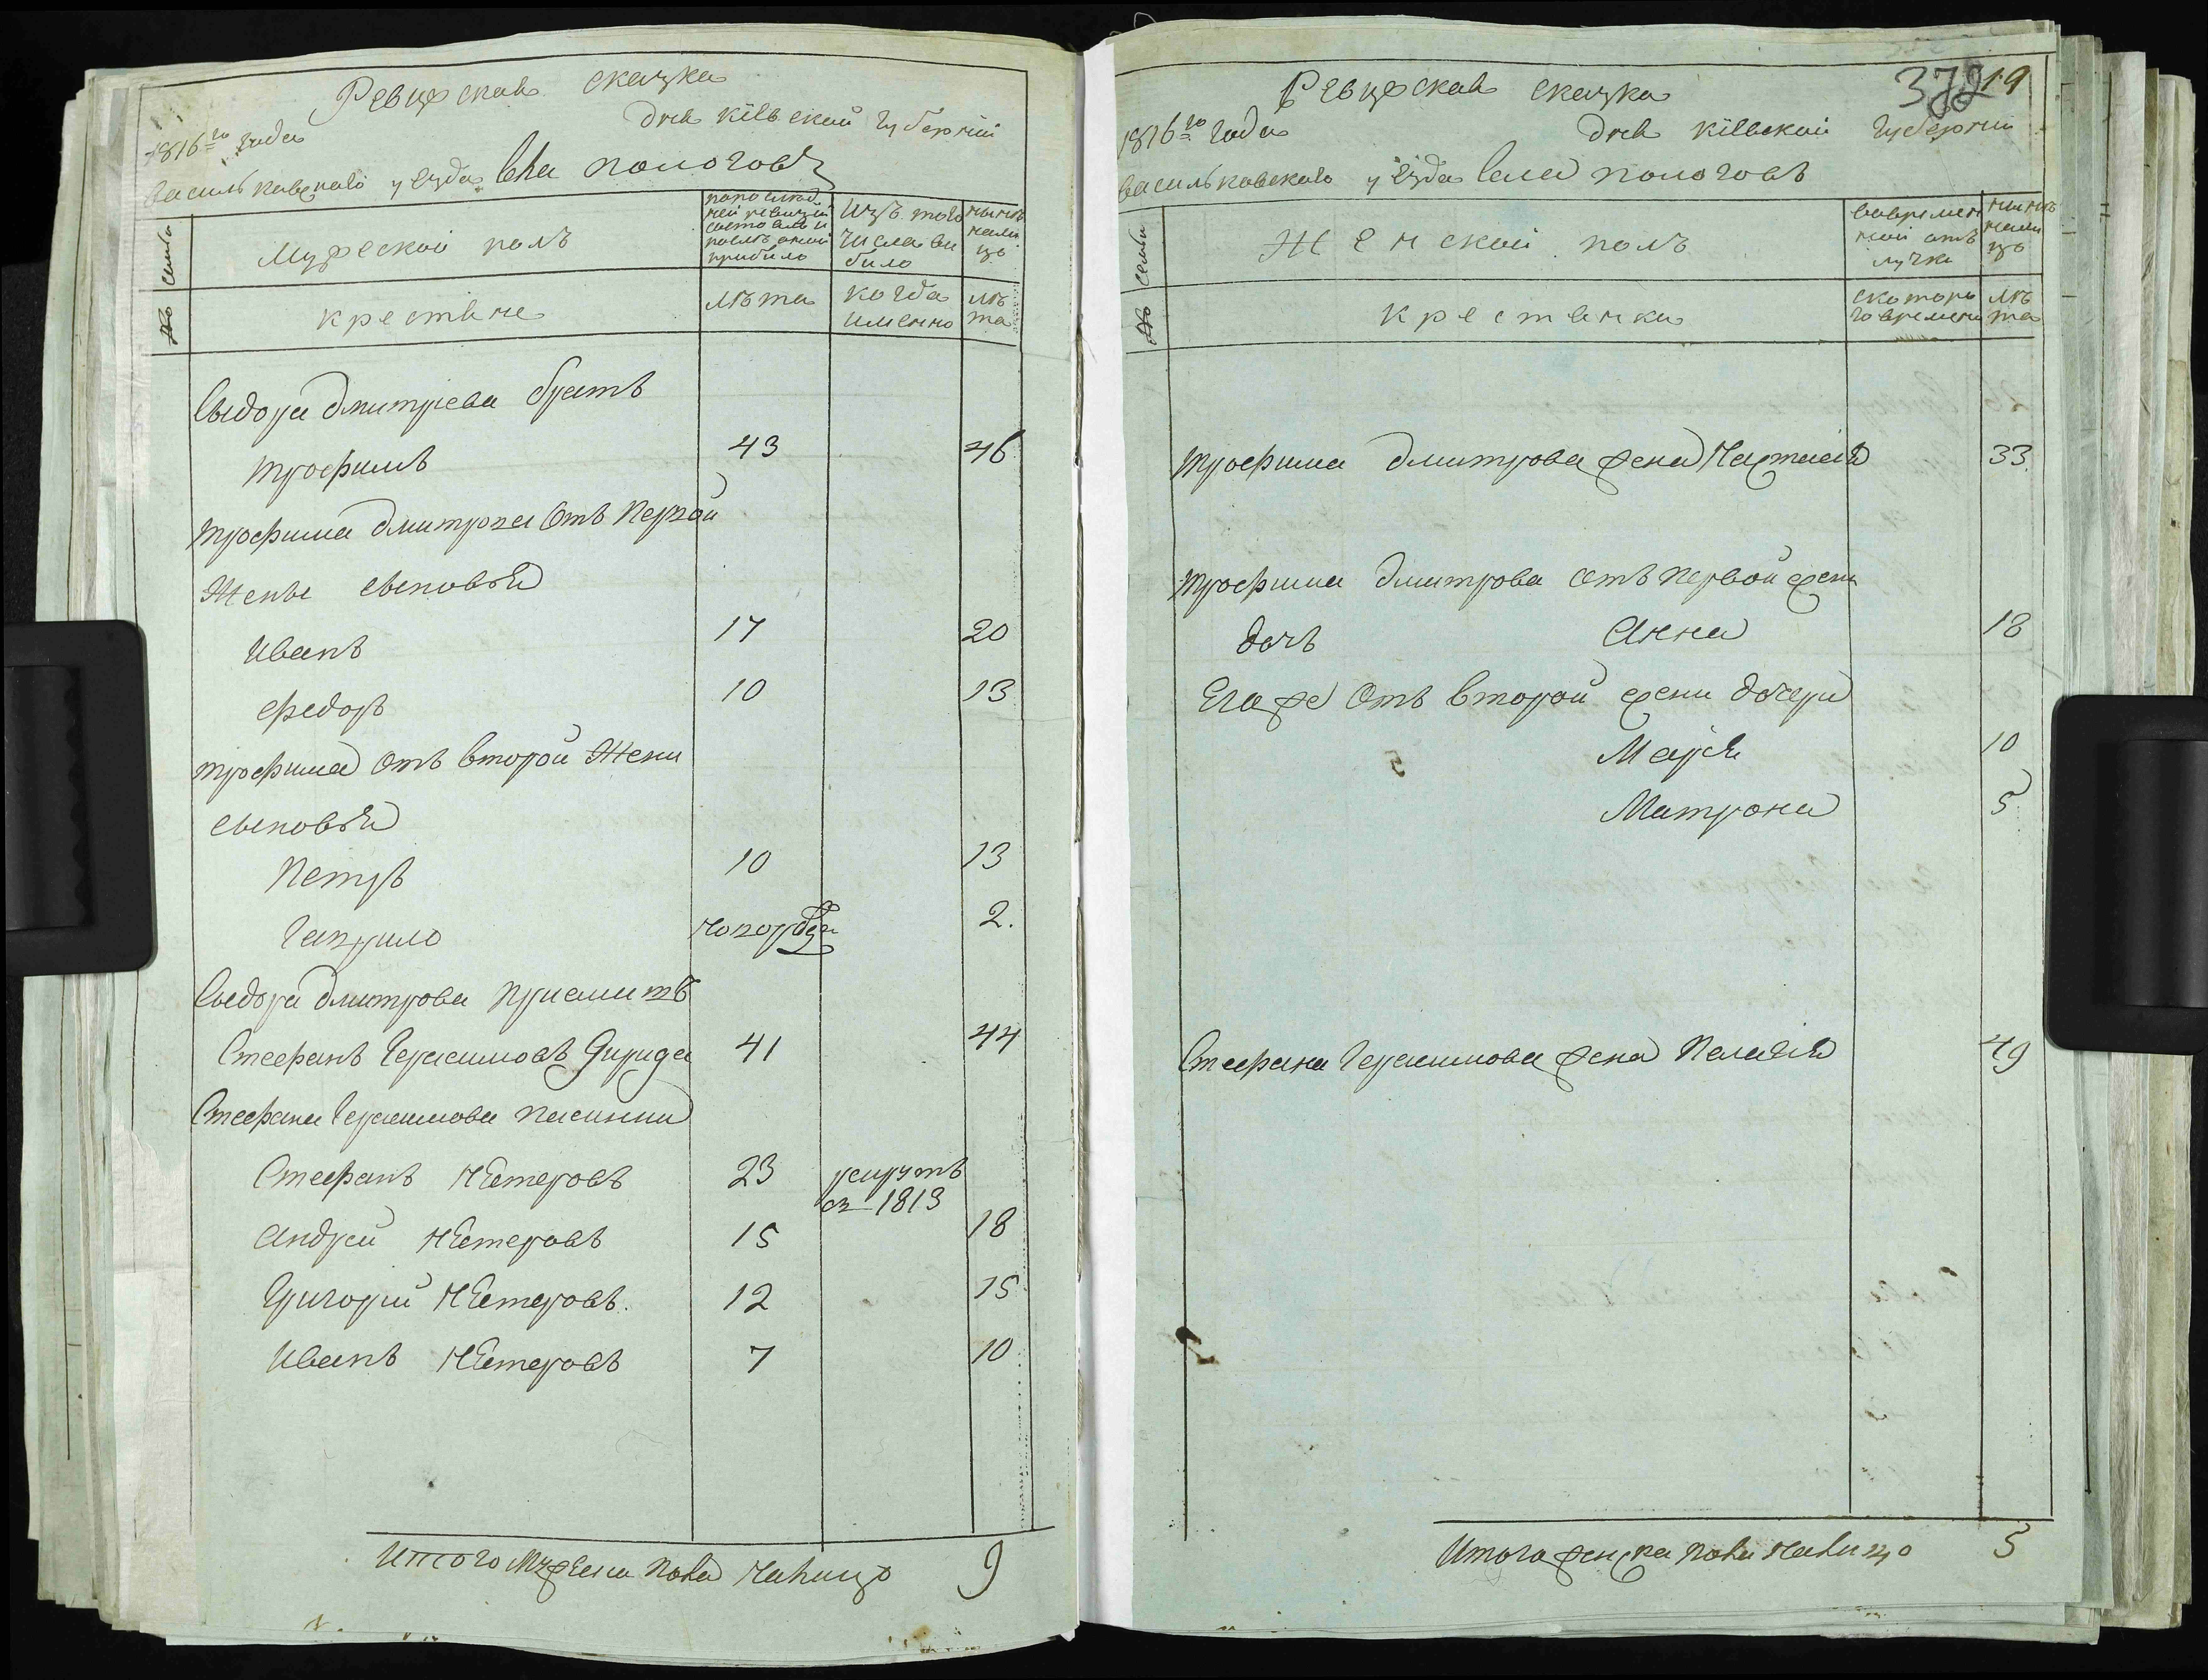 Ревизская сказка
1816го года дня кіевской губерніи
васильковского уезда села пологовъ
№ семьи
Мужеской полъ
по послѣдней ревизіи состояло и послѣ оной прибыло
Изъ того числа выбыло
нынѣ налицо
крестьяне
лѣта
когда именно
лѣта
Сыдора дмитріева братъ
трофимъ 43 46
трофима дмитрова отъ первой
Жены сыновья
Иванъ 17 20
федоръ 10 13
трофима отъ второй Жени
сыновья
Петръ 10 13
Гаврило новорож 2.
Сыдора дмитрова приемитъ
Стефанъ Герасимовъ Дирида 41 44
Стефана Герасимова пасинки
Стефанъ Нестеровъ 23 рекрутъ
въ 1813
Андрей Нестеровъ 15 18
Григорий Нестеровъ. 12 15
Иванъ Нестеровъ 7 10
Итого Мужеска пола налицо 9
372 19
Ревизская сказка
1816го года дня кіевской губерніи
васильковского уезда села пологовъ
№ семьи
Женской полъ
во временной отлучке
нынѣ налицо
крестьянки
с которого времени
лѣта
трофима дмитрова жена Настасія 33.
трофима дмитрова отъ первой жени
дочъ Анна 18
Его же отъ второй жени дочери
Марія 10
Матрона 5
Стефана Герасимова жена Пелагія 49
Итого женска пола налицо 5